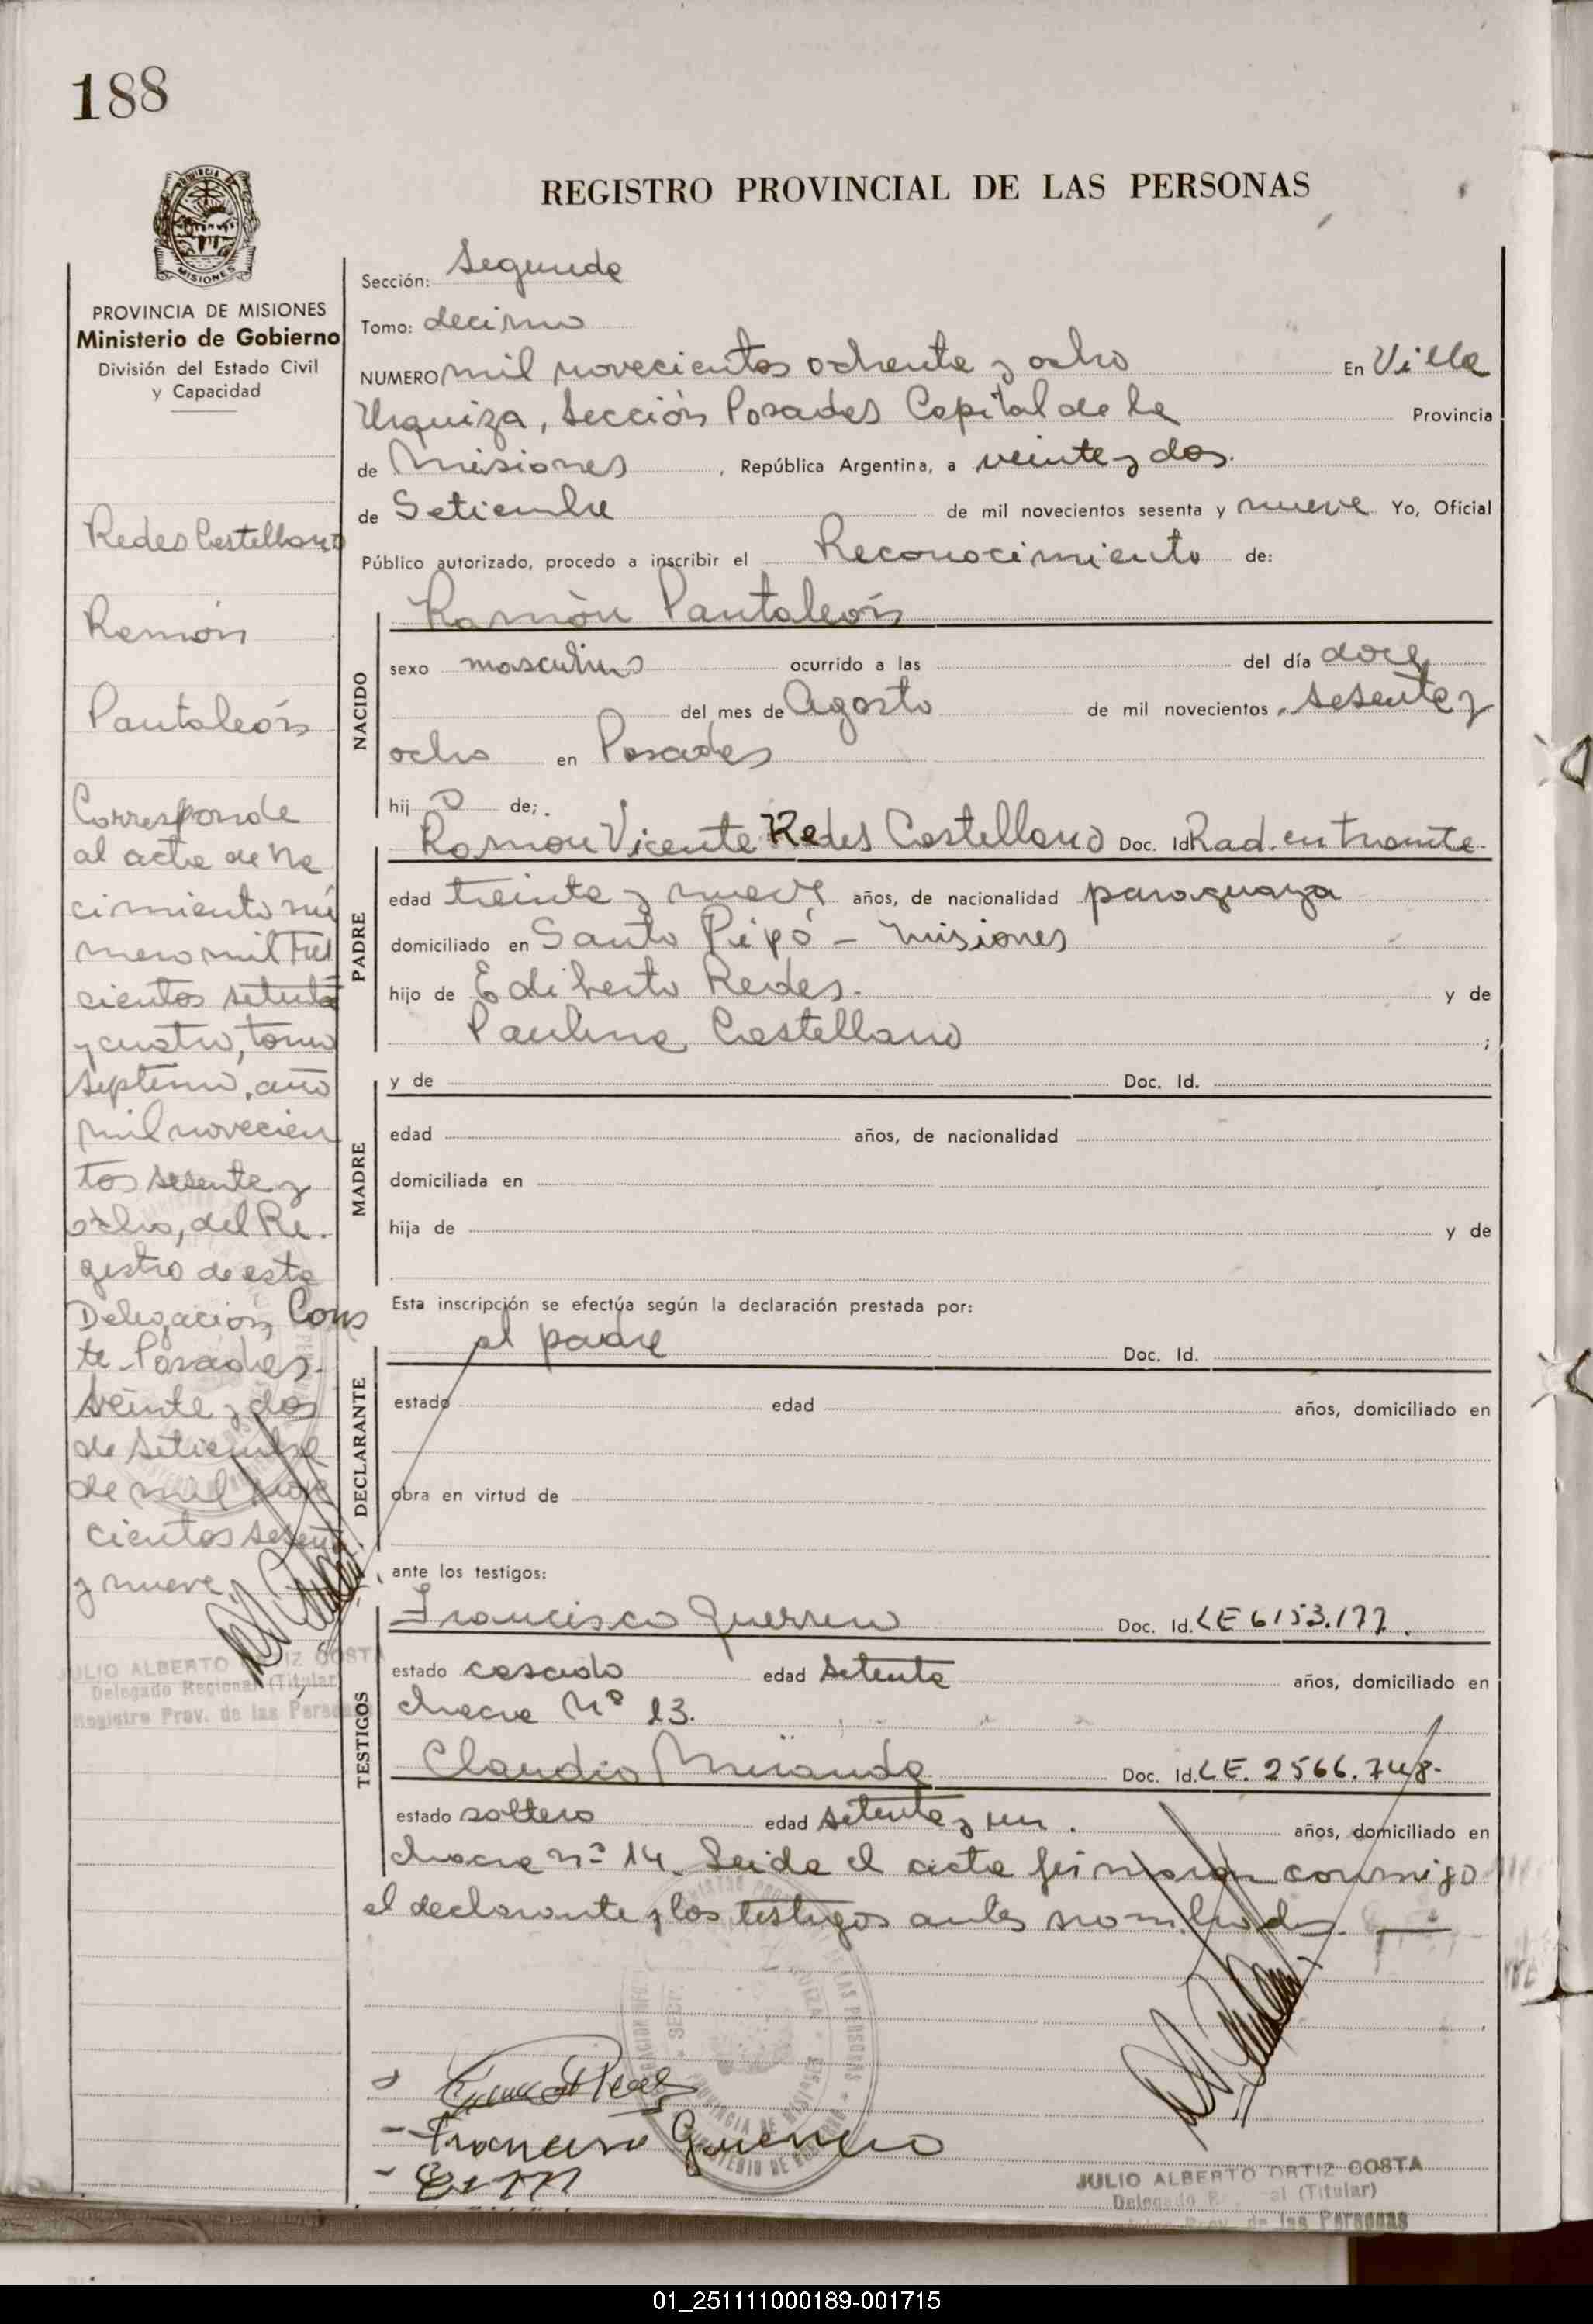 188
PROVINCIA DE
MISIONES
PROVINCIA DE MISIONES
Ministerio de Gobierno
División del Estado Civil
y Capacidad
Redes Castellano
Ramón
Pantaleón
Corresponde
al acta de na
cimiento nú
mero mil tres
cientos setenta
y cuatro, tomo
septimo, año
mil novecien
tos sesenta y
ocho, del Re.
gistro de esta
Delegación, Cons
te. Posadas.
veinte y dos
de Setiembre
de mil nove
cientos sesenta
y nueve.
JULIO ALBERTO ORTIZ COSTA
Delegado Regional (Titular)
Registro Prov. de las Personas
REGISTRO PROVINCIAL DE LAS PERSONAS
Sección: Segunda
Tomo: decimo
NUMERO mil novecientos ochenta y ocho En Villa
Urquiza, Sección Posadas Capital de la Provincia
de Misiones, República Argentina, a veinte y dos.
de Setiembre de mil novecientos sesenta y nueve Yo, Oficial
Público autorizado, procedo a inscribir el Reconocimiento de:
Ramón Pantaleón
NACIDO
sexo masculino ocurrido a las del día doce
del mes de Agosto de mil novecientos sesenta y
ocho en Posadas
hij o de;
PADRE
Ramon Vicente Redes Castellano Doc. Id Rad. en tramite.
edad treinta y nueve años, de nacionalidad paraguaya
domiciliado en Santo Pipó - Misiones
hijo de Ediberto Redes. y de
Paulina Castellano ;
MADRE
y de Doc. Id.
edad años, de nacionalidad
domiciliada en
hija de y de
Esta inscripción se efectúa según la declaración prestada por:
DECLARANTE
el padre Doc. Id.
estado edad años, domiciliado en
obra en virtud de
ante los testigos:
TESTIGOS
Francisco Guerrero Doc. Id. LE 6153.177.
estado casado edad setenta años, domiciliado en
chacra Nº 13.
Claudio Miranda Doc. Id. LE. 2566.748-
estado soltero edad setenta y un. años, domiciliado en
chacra nº 14. Leida el acta firmaron conmigo
el declarante y los testigos antes nombrados.
Francisco Guerrero
JULIO ALBERTO ORTIZ COSTA
Delegado Regional (Titular)
Registro Prov. de las Personas
01_251111000189-001715